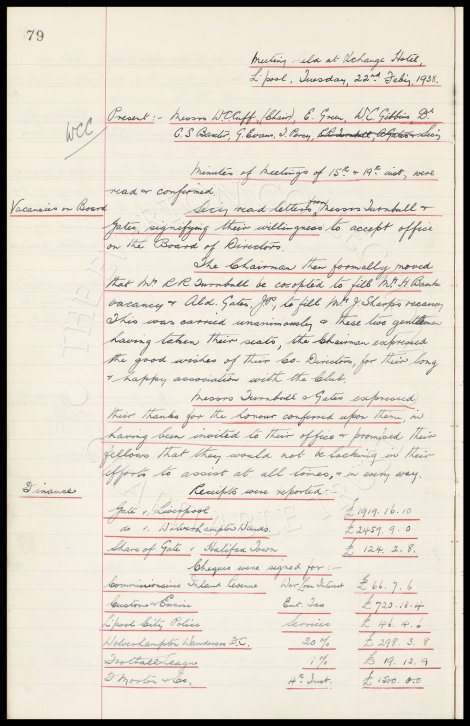 79
Meeting held at Xchange Hotel,
L'pool, Tuesday, 22nd Feb'y, 1938.
Present :- Messrs W C Cuff, (Chair), E. Green, W. C. Gibbins, Dr
C. S. Baxter, G. Evans, T. Percy, R.R. Turnbull, A Gates & Secy
WCC
Minutes of Meetings of 15th & 19th inst, were
read & confirmed
Vacancies on Board
Secy read letters from Messrs Turnbull &
Gates, signifying their willingness to accept office
on the Board of Directors.
The Chairman then formally moved
that Mr R R Turnbull be co-opted to fill Mr H Banks
vacancy & Ald. Gates, J.P., to fill Mr J. Sharp's vacancy
This was carried unanimously & these two gentlemen
having taken their seats, the Chairman expressed
the good wishes of their Co-Directors, for their long
& happy association with the Club.
Messrs Turnbull & Gates expressed
their thanks for the honour conferred upon them, in
having been invited to their office & promised their
fellows that they would not be lacking in their
efforts to assist at all times, & in every way.
Finance
Receipts were reported :-
Gate v. Liverpool £1919.16.10
do v. Wolverhampton Wands. £2459.9.0
Share of Gate v Halifax Town £124.2.8.
Cheques were signed for :-
Commissioners Inland Revenue War Loan Interest £66.7.6
Customs & Excise Ent. Tax £723.18.4
L'pool City Police Services £46.4.6
Wolverhampton Wanderers F.C. 20% £298.3.8
Football League 1% £19.13.9
F Morton & Co. 4th Inst. £1500.0.0